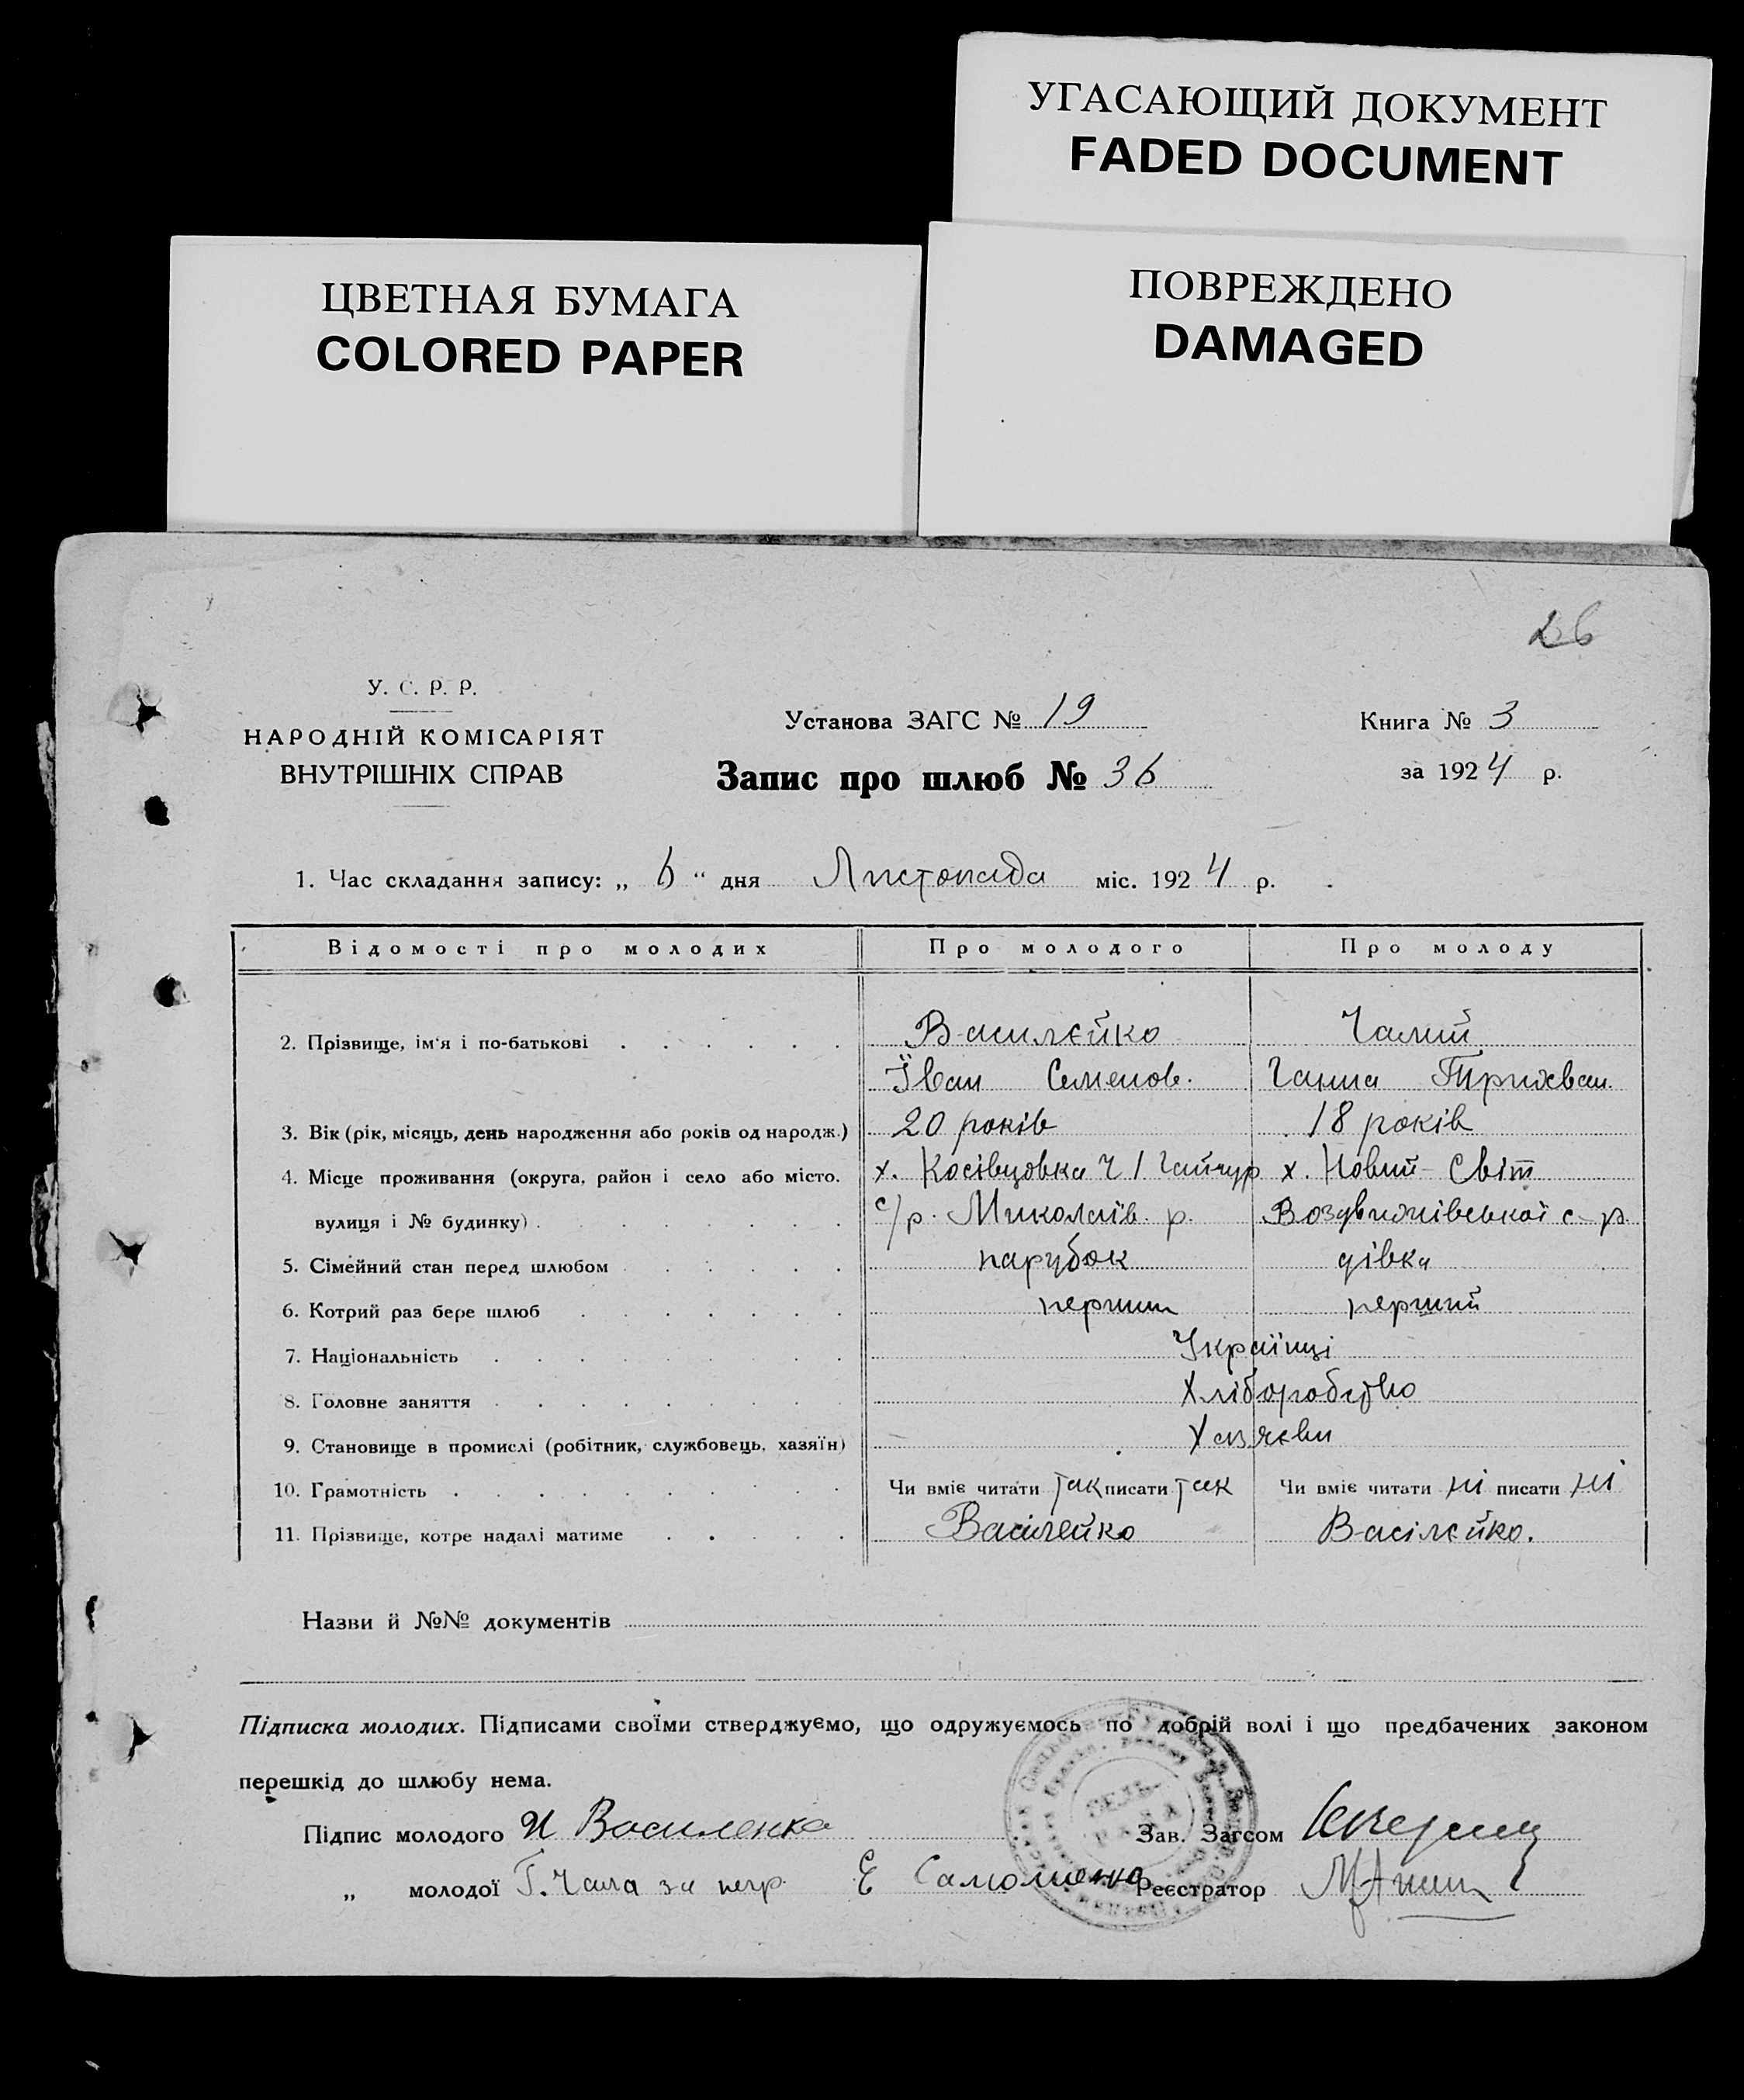 УГАСАЮЩИЙ ДОКУМЕНТ
FADED DOCUMENT
ЦВЕТНАЯ БУМАГА
COLORED PAPER
ПОВРЕЖДЕНО
DAMAGED
26
У. С. Р. Р.
НАРОДНІЙ КОМІСАРІЯТ
ВНУТРІШНІХ СПРАВ
Установа ЗАГС № 19
Книга № 3
Запис про шлюб № 36
за 1924 р.
1. Час складання запису: „ 6 “ дня Листопада міс. 1924 р.
Відомості про молодих Про молодого Про молоду
2. Прізвище, ім'я і по-батькові Василєйко Чалий
Їван Семенов. Ганна
3. Вік (рік, місяць, день народження або років од народж.) 20 років 18 років
4. Місце проживання (округа, район і село або місто. х. Косівцовка Ч / Гайчур х. Новий-Світ
вулиця і № будинку) с/р. Миколаїв. р. Воздвижівської с-р.
5. Сімейний стан перед шлюбом парубок дівка
6. Котрий раз бере шлюб перший перший
7. Національність Українці
8. Головне заняття Хліборобство
9. Становище в промислі (робітник, службовець, хазяїн) Хазяєви
10. Грамотність Чи вміє читати так писати так Чи вміє читати ні писати ні
11. Прізвище, котре надалі матиме Васілейко Васілєйко.
Назви й №№ документів
Підписка молодих. Підписами своїми стверджуємо, що одружуємось по добрій волі і що предбачених законом
перешкід до шлюбу нема.
Підпис молодого И Василенко Зав. Загсом
„ молодої Г. Чала за негр. Е Самойленко Реєстратор